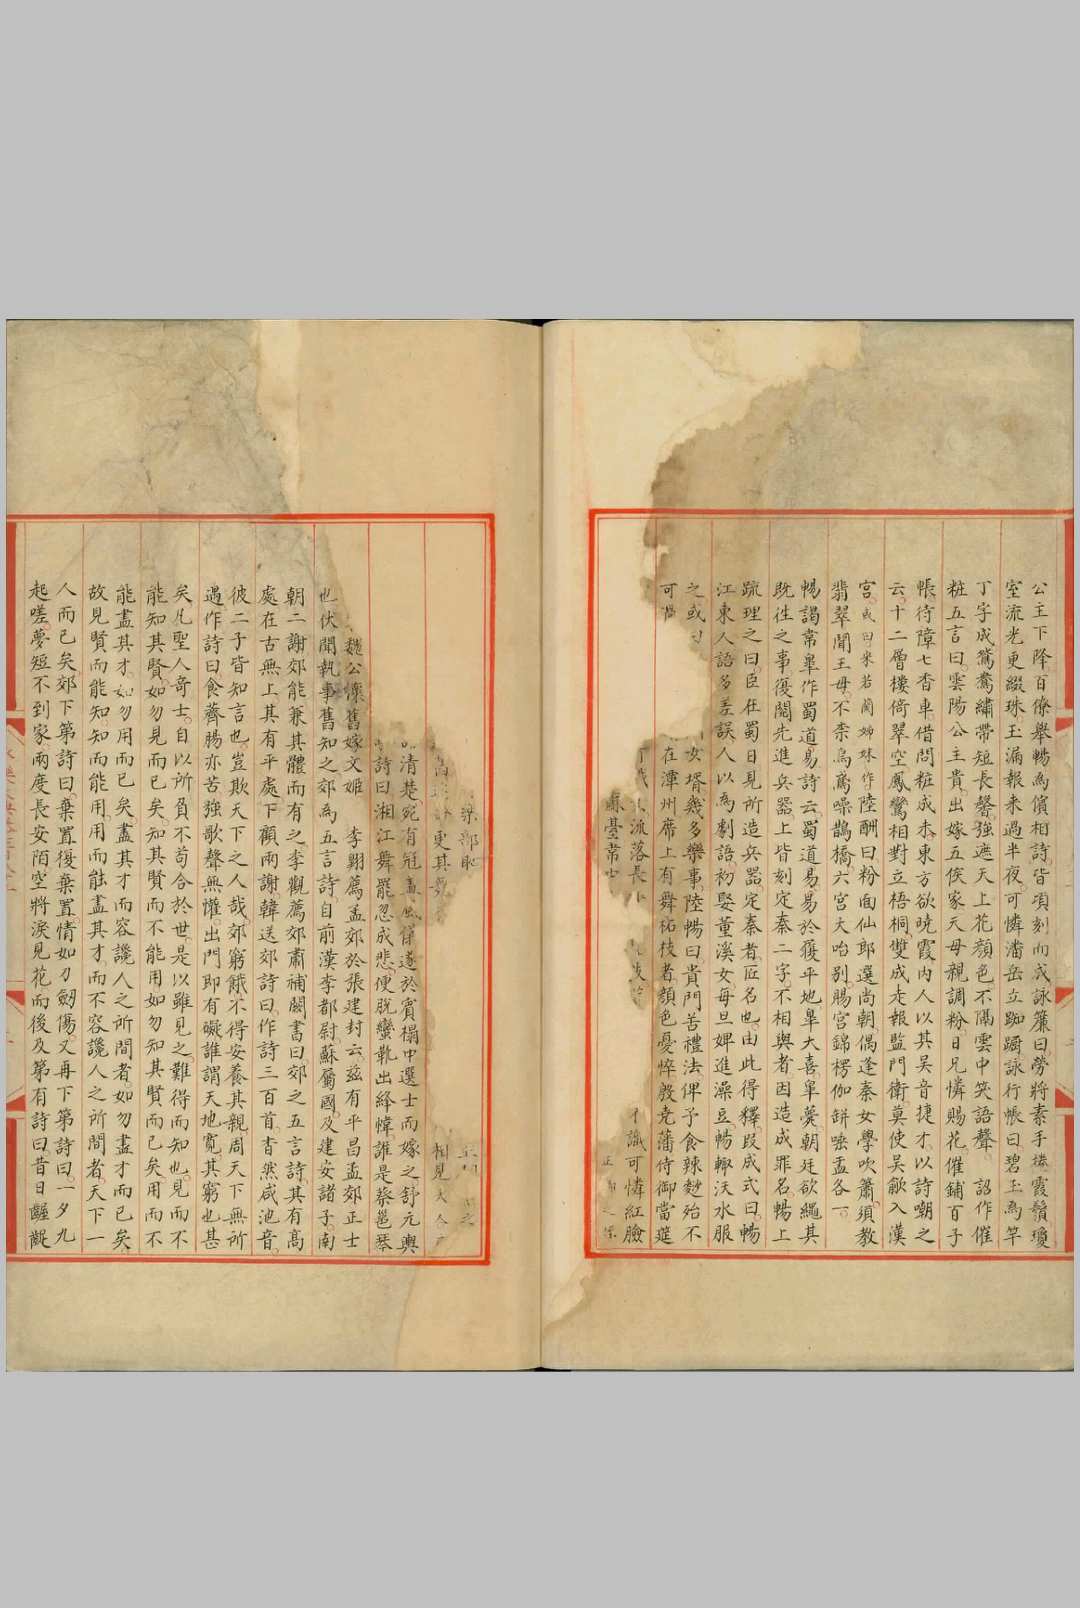 公主下降百僚舉暢為儐相詩皆頃刻而成詠簾曰勞將素手捲霞鬚瓊
室流光更綴珠玉漏報来過半夜可憐潘岳立踟躕詠行帳曰碧玉為竿
丁字成鴛鴦繡帶短長馨強遮天上花顏色不隔雲中笑語聲 詔作催
粧五言曰雲陽公主貴出嫁五侯家天母親調粉日兄憐賜花催鋪百子
帳待障七香車借問粧成未東方欲曉霞内人以其吴音捷才以詩嘲之
云十二層樓倚翠空鳳鸞相對立梧桐雙成走報監門衛莫使吴歈入漢
宫或曰宋若蘭姊妹作陸酬曰粉面仙郎選尚朝偶逢秦女學吹簫須教
翡翠聞王母不柰烏鳶噪鵲橋六宫大咍别賜宫錦楞伽缾唾盂各一
暢謁常臯作蜀道易詩云蜀道易易於履平地臯大喜臯薨朝廷欲繩其
既往之事復閱先進兵器上皆刻定秦二字不相與者因造成罪名暢上
疏理之曰臣在蜀日見所造兵器定秦者匠名也由此得釋叚成式曰暢
江東人語多差誤人以為劇語初娶董溪女每旦婢進澡豆暢輙沃水服
之或 女壻幾多樂事陸暢曰貴門苦禮法俾予食辣麨殆不
可 在潭州席上有舞柘枝者顔色憂悴殷尭藩侍御當筵
流落長 識可憐紅臉
臺常
樂部
更其 相見大
清楚宛有冠盖風儀遂於賓榻中選士而嫁之舒元輿
詩曰湘江舞罷忽成悲便脱蠻靴出絳幃誰是蔡邕琴
魏公懷舊嫁文姬 李翺薦孟郊於張建封云兹有平昌孟郊正士
也伏聞執事舊知之郊為五言詩自前漢李都尉蘇屬國及建安諸子南
朝二謝郊能兼其體而有之李觀薦郊肅補闕書曰郊之五言詩其有高
處在古無上其有平處下顧兩謝韓送郊詩曰作詩三百首杳然咸池音
彼二子皆知言也豈欺天下之人哉郊窮餓不得安養其親周天下無所
遇作詩曰食薺腸亦苦強歌聲無懽出門即有礙誰謂天地寛其窮也甚
矣凡聖人奇士自以所負不苟合於世是以雖見之難得而知也見而不
能知其賢如勿見而已矣知其賢而不能用如勿知其賢而已矣用而不
能盡其才如勿用而已矣盡其才而容讒人之所間者如勿盡才而已矣
故見賢而能知知而能用用而能盡其才而不容讒人之所間者天下一
人而已矣郊下第詩曰棄置復棄置情如刀劒傷又再下第詩曰一夕九
起嗟夢短不到家兩度長安陌空將淚見花而後及第有詩曰昔日齷齪